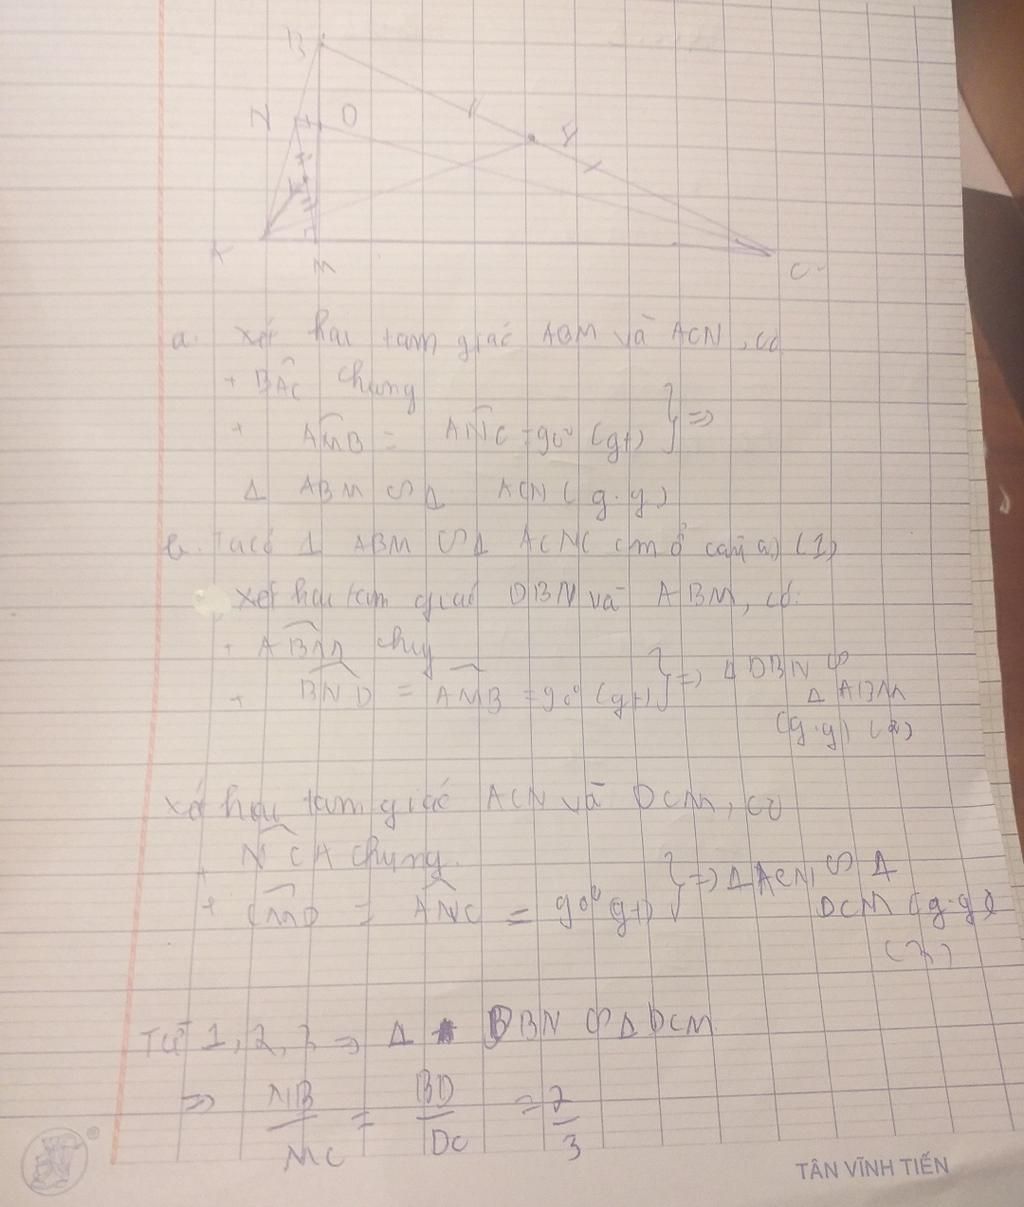 B
N D
A M C
a. Xét hai tam giác ABM và ACN, có
+ BAC chung
+ AMB = ANC = 90° (gt) } =>
Δ ABM ∽ Δ ACN (g.g)
b. Ta có Δ ABM ∽ Δ ACN (cm ở câu a) (1)
Xét hai tam giác DBN và ABM, có:
+ ABM chug
+ BND = AMB = 90° (gt) } => Δ DBN ∽
Δ ABM
(g.g) (2)
Xét hai tam giác ACN và DCM, có
+ NCA chung.
+ CMD = ANC = 90° (gt) } => Δ ACN ∽ Δ
DCM (g.g)
(3)
Từ 1, 2, 3 => Δ DBN ∽ Δ DCM
=> NB/MC = BD/DC = 2/3
TÂN VĨNH TIẾN